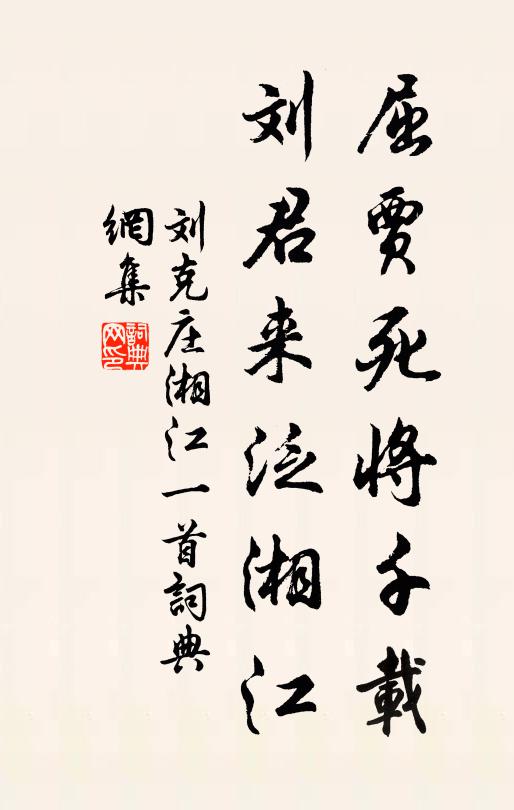 屈賈死將千載
刘君来泛湘江
刘克庄湘江一首詞典
網集
詞典网印